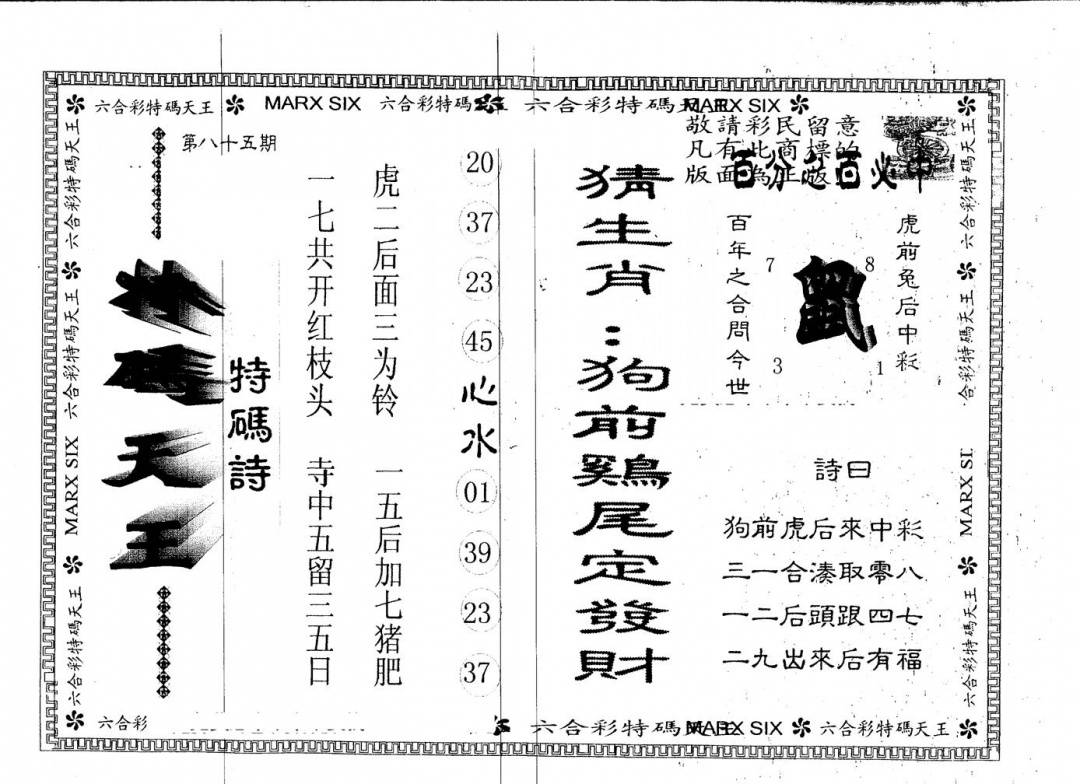 六合彩特碼天王 MARX SIX 六合彩特碼 六合彩特碼天王 MARX SIX
敬請彩民留意
凡有此商標的
版面為正版
百分之百必中
第八十五期
特碼天王
特碼詩
一七共开红枝头 寺中五留三五日
虎二后面三为铃 一五后加七猪肥
20
37
23
45
心水
01
39
23
37
猜生肖:狗前鷄尾定發財
百年之合問今世
7
8
鼠
3
1
虎前兔后中彩
詩曰
狗前虎后來中彩
三一合湊取零八
一二后頭跟四七
二九出來后有福
六合彩特碼天王
六合彩特碼天王
MARX SIX
六合彩特碼天王
六合彩特碼天王
六合彩特碼天王
合彩特碼天王
MARX SI
六合彩特碼天王
六合彩 六合彩特碼 MARX SIX 六合彩特碼天王